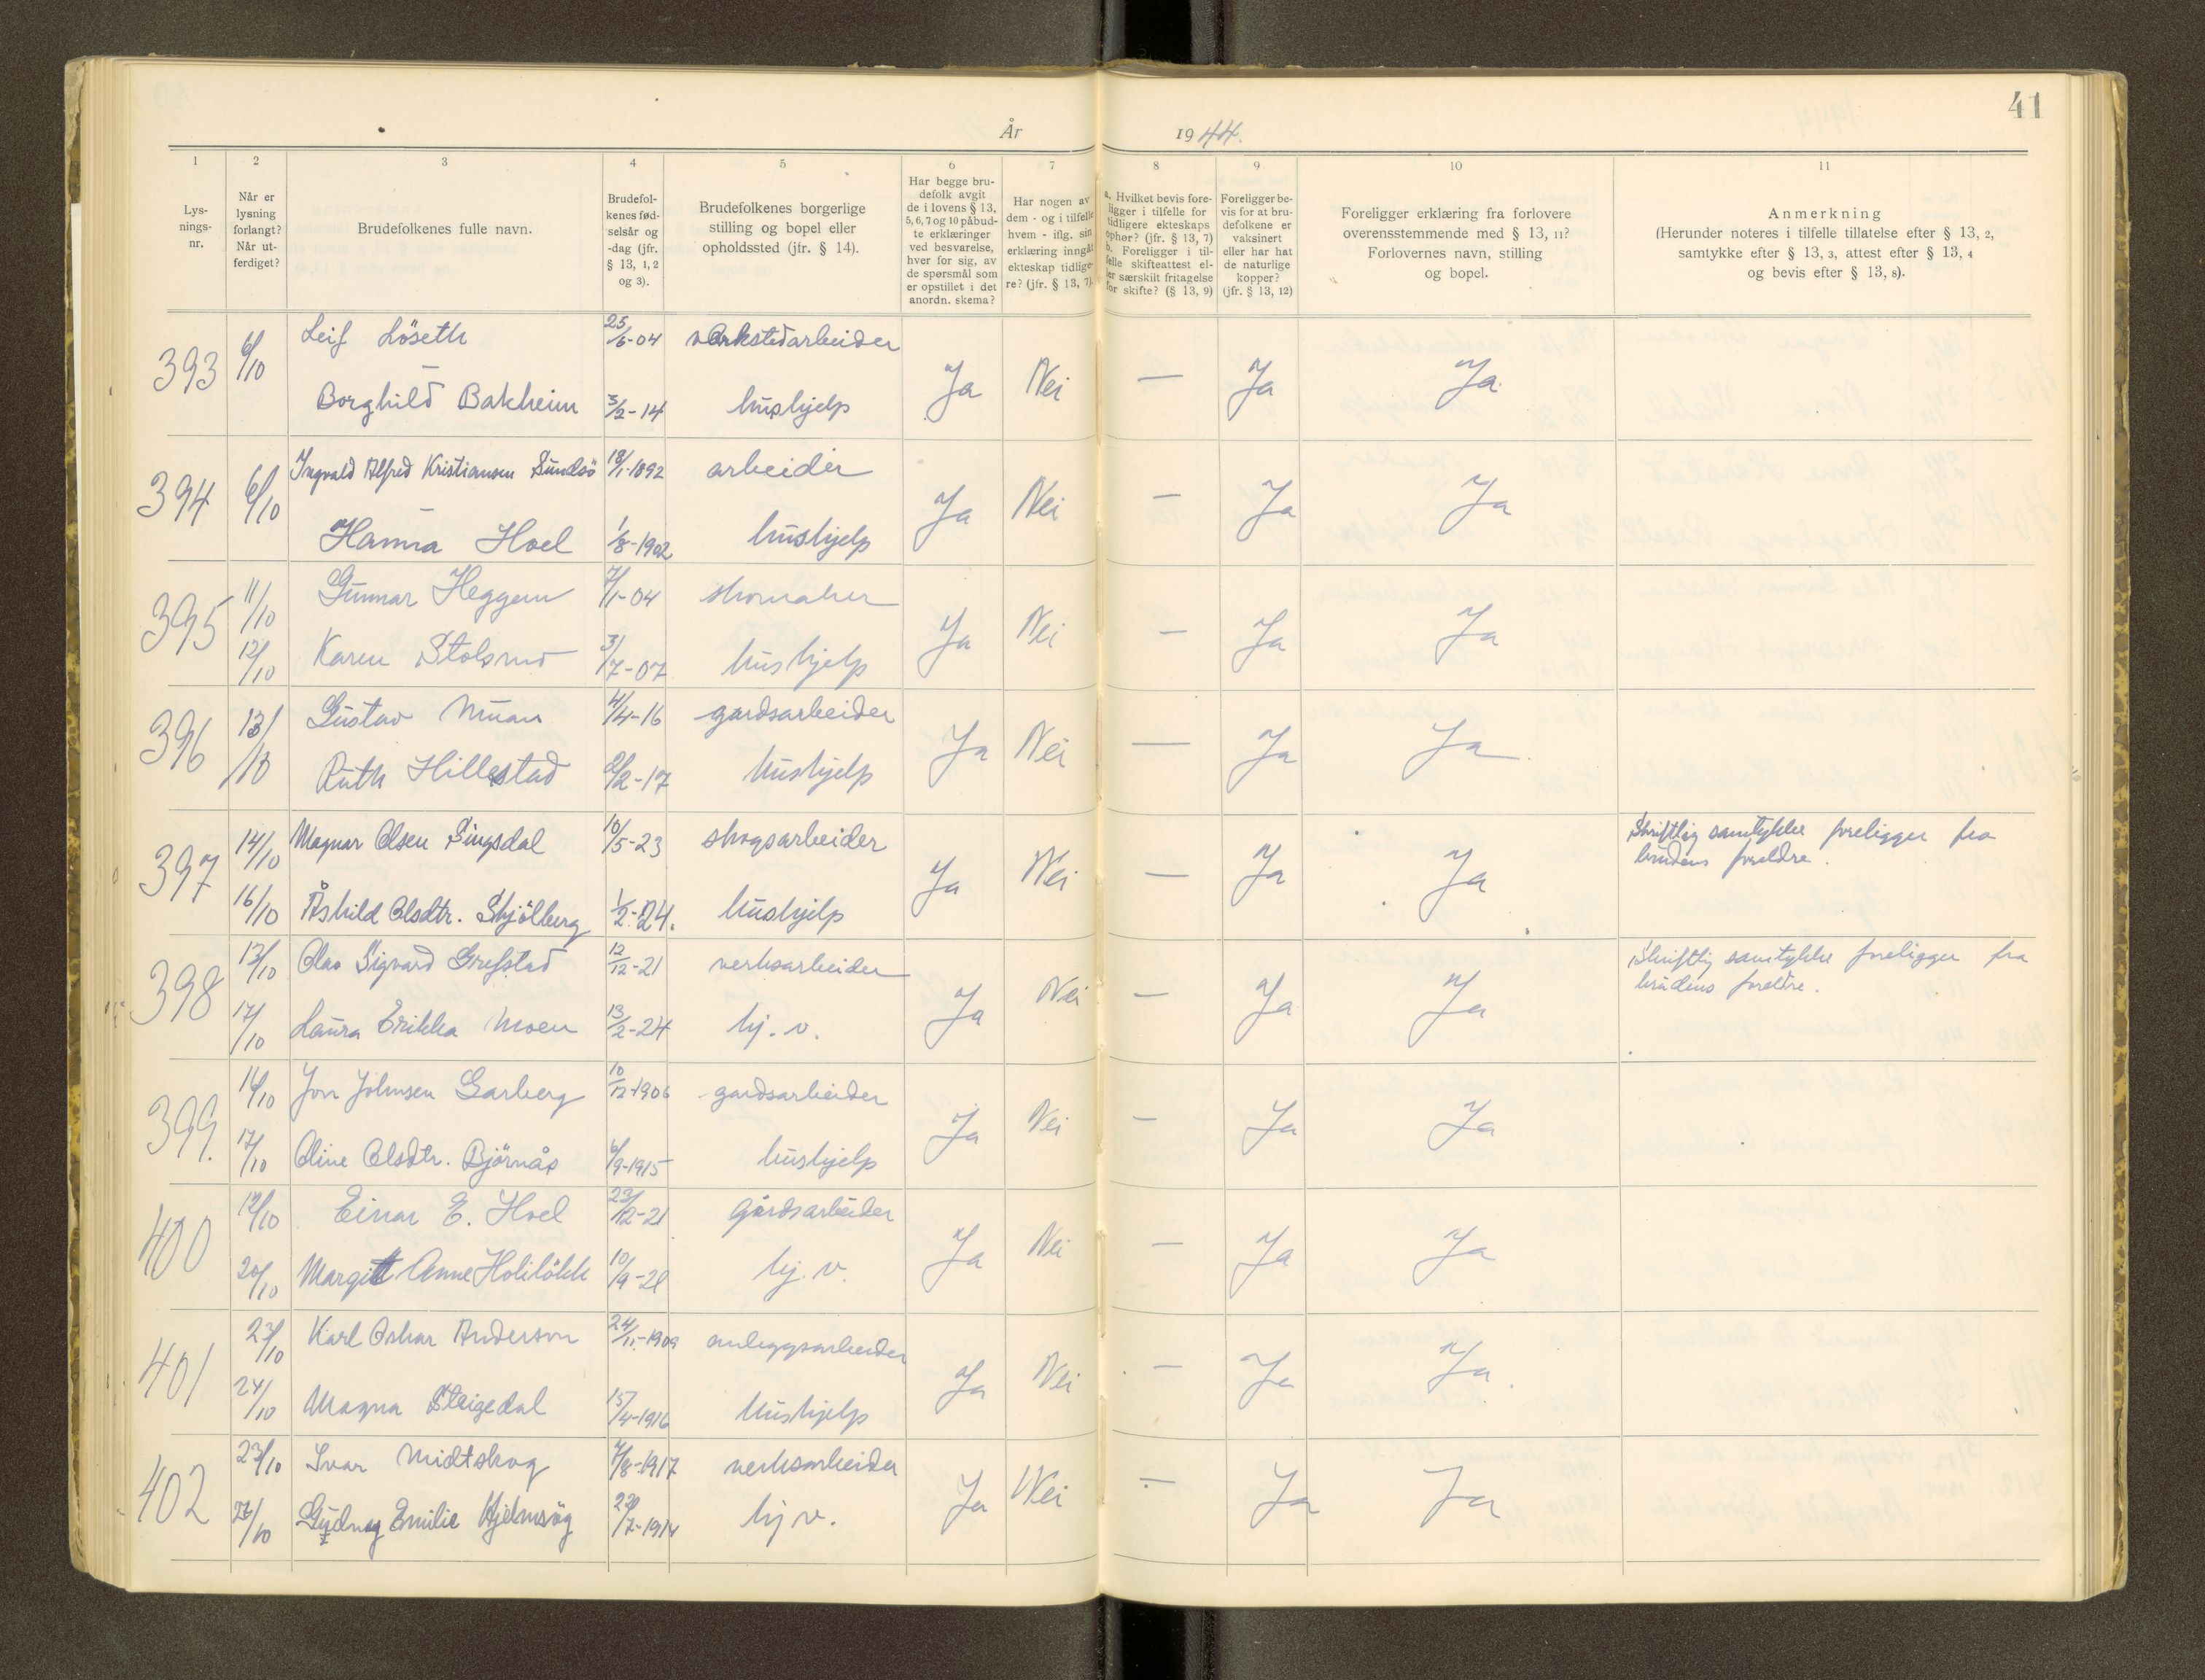 41
År 1944.
1 2 3 4 5 6 7 8 9 10 11
Lys-
nings-
nr.
Når er
lysning
forlangt?
Når ut-
ferdiget?
Brudefolkenes fulle navn.
Brudefol-
kenes fød-
selsår og
-dag (jfr.
§ 13, 1, 2
og 3).
Brudefolkenes borgerlige
stilling og bopel eller
opholdssted (jfr. § 14).
Har begge bru-
defolk avgit
de i lovens § 13,
5, 6, 7 og 10 påbud-
te erklæringer
ved besvarelse,
hver for sig, av
de spørsmål som
er opstillet i det
anordn. skema?
Har nogen av
dem - og i tilfelle
hvem - iflg. sin
erklæring inngåt
ekteskap tidlige-
re? (jfr. § 13, 7).
a. Hvilket bevis fore-
ligger i tilfelle for
tidligere ekteskaps
ophør? (jfr. § 13, 7)
b. Foreligger i til-
felle skifteattest el-
ler særskilt fritagelse
for skifte? (§ 13, 9)
Foreligger be-
vis for at bru-
defolkene er
vaksinert
eller har hat
de naturlige
kopper?
(jfr. § 13, 12)
Foreligger erklæring fra forlovere
overensstemmende med § 13, 11?
Forlovernes navn, stilling
og bopel.
Anmerkning
(Herunder noteres i tilfelle tillatelse efter § 13, 2,
samtykke efter § 13, 3, attest efter § 13, 4
og bevis efter § 13, 8).
393 6/10 Leif Löseth 25/6-04 verkstedarbeider Ja Nei — Ja Ja
Borghild Bakheim 3/2-14 hushjelp
394 6/10 Ingvald Alfred Kristiansen Sundsö 18/1-1892 arbeider Ja Nei — Ja Ja
Hanna Hoel 1/8-1902 hushjelp
395 11/10 Gunnar Heggem 7/1-04 skomaker Ja Nei — Ja Ja
12/10 Karen Stolsmo 3/7-07 hushjelp
396 13/10 Gustav Muan 4/4-16 gardsarbeider Ja Nei — Ja Ja
Ruth Hillestad 2/2-17 hushjelp
397 14/10 Magnar Olsen Singsdal 10/5-23 skogsarbeider Ja Nei — Ja Ja Skriftlig samtykke foreligger fra
brudens foreldre.
16/10 Åshild Olsdtr. Skjölberg 1/2-24. hushjelp
398 13/10 Olav Sigvard Grefstad 12/12-21 verksarbeider Ja Nei — Ja Ja Skriftlig samtykke foreligger fra
brudens foreldre.
17/10 Laura Erikka Moen 13/2-24 hj. v.
399. 16/10 Jon Johnsen Garberg 10/12-1906 gardsarbeider Ja Nei — Ja Ja
17/10 Oline Olsdtr. Björnås 6/9-1915 hushjelp
400 19/10 Einar E. Hoel 23/12-21 gårdsarbeider Ja Nei — Ja Ja
20/10 Margitt Anne Holilökk 10/9-21 hj. v.
401 23/10 Karl Oskar Anderson 24/11-1909 anleggsarbeider Ja Nei — Ja Ja.
24/10 Magna Steigedal 15/4-1916 hushjelp
402 23/10 Ivar Midtskog 4/8-1917 verksarbeider Ja Nei — Ja Ja
27/10 Gudnag Emilie Hjelmsög 22/7-1914 hj v.